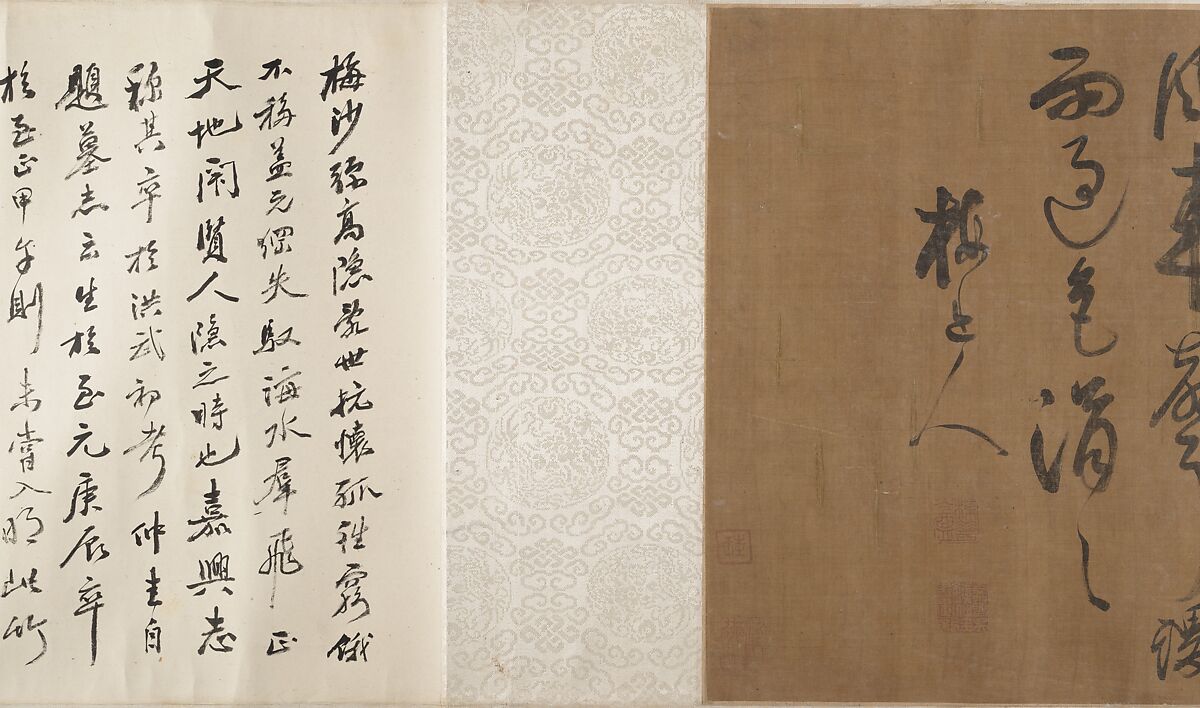 雨過色涓〻
梅道人
梅沙弥高隱亂世抗懷孤往窮餓
不移蓋元綱失馭海水羣飛正
天地閉賢人隱之時也嘉興志
称其卒於洪武初考仲圭自
題墓志云生於至元庚辰卒
於至正甲午則未嘗入明此竹